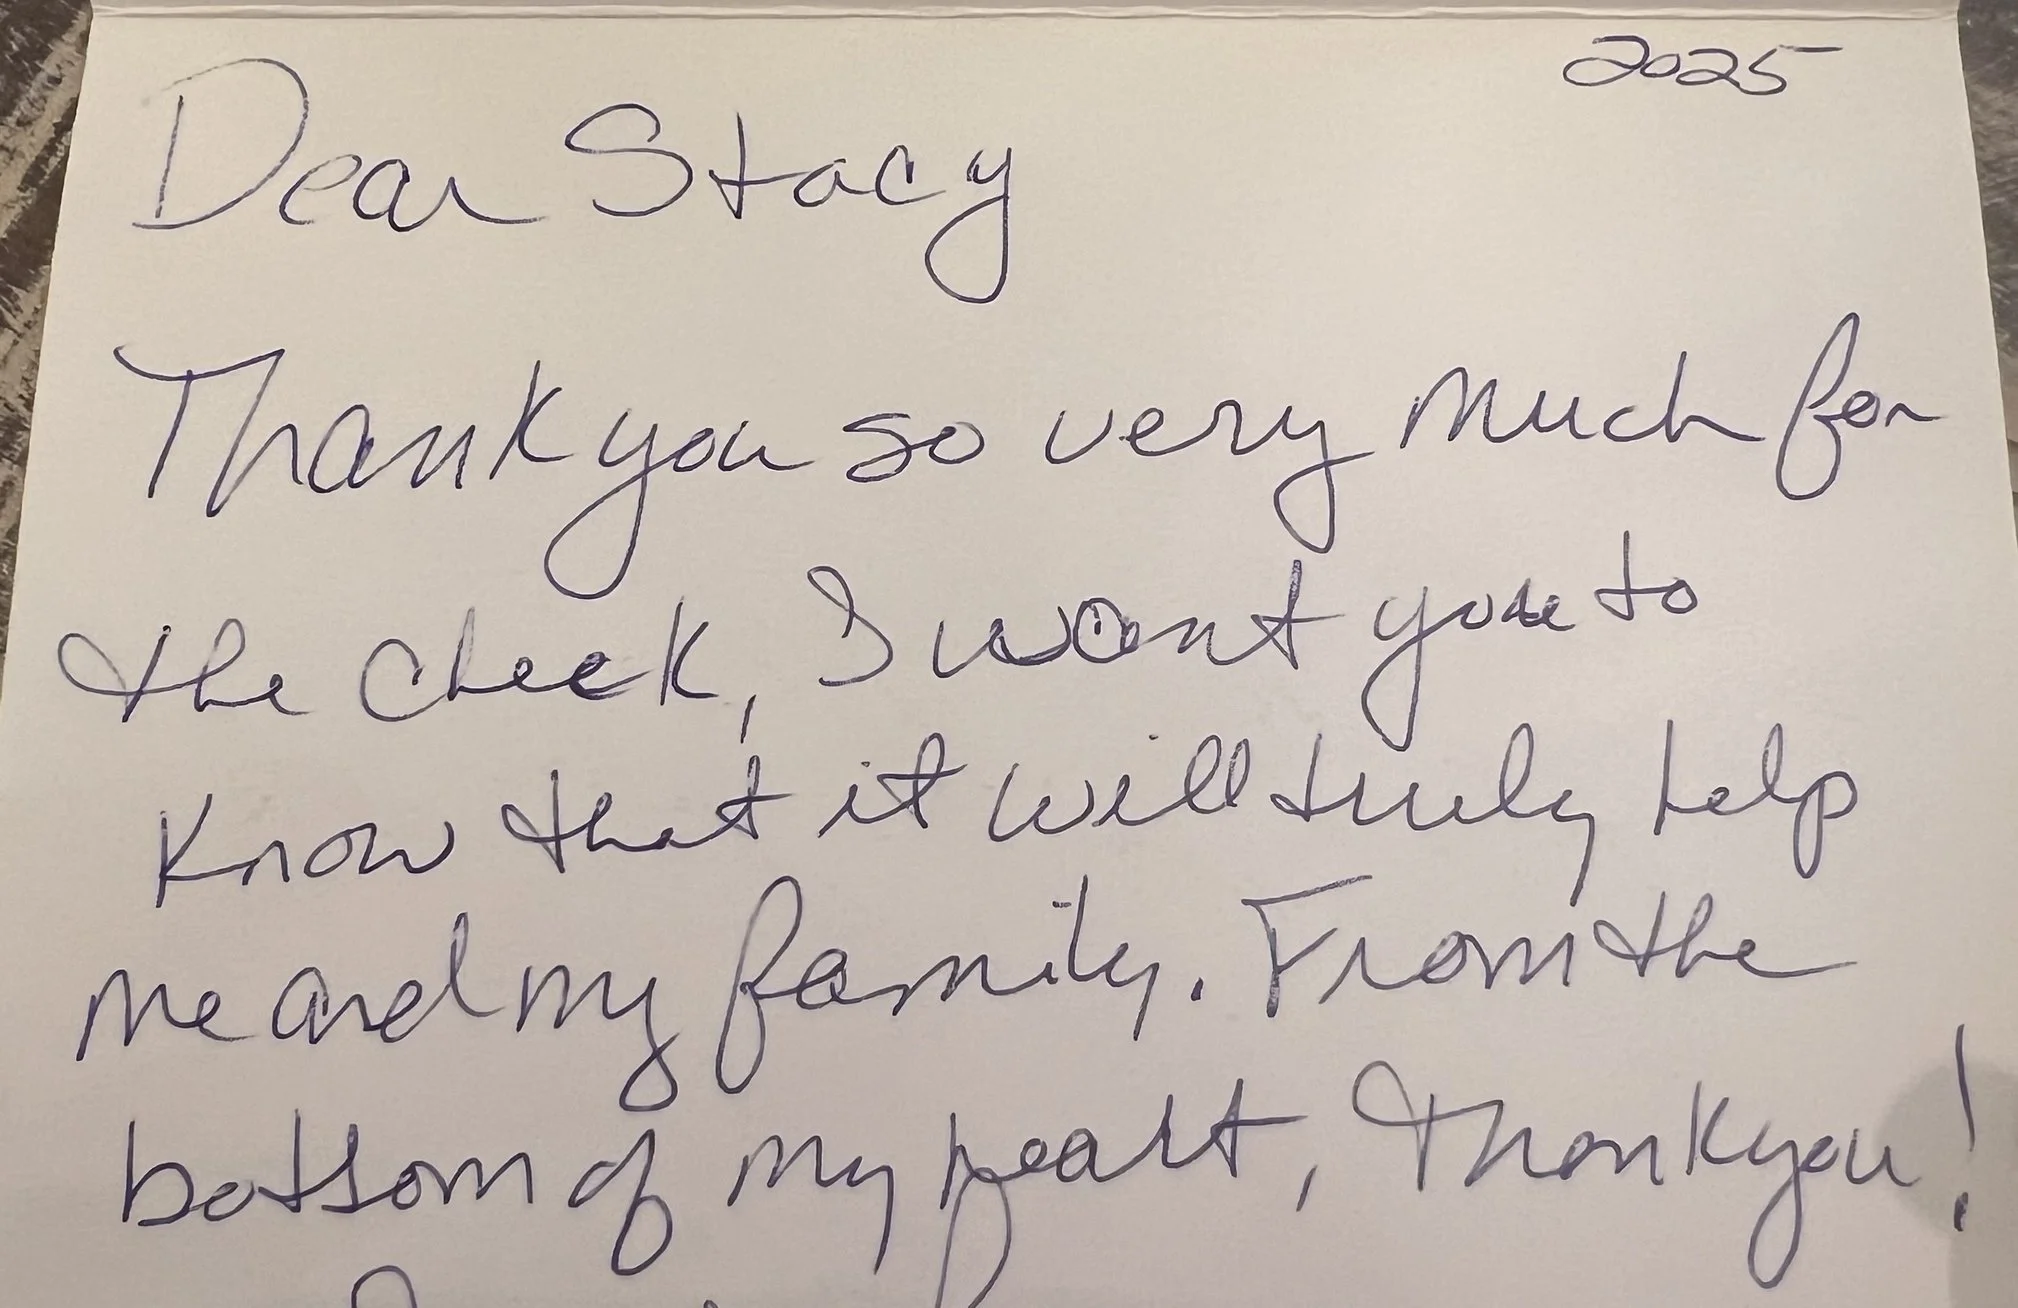 2025
Dear Stacy
Thank you so very much for
the check, I want you to
know that it will truly help
me and my family. From the
bottom of my heart, thank you!